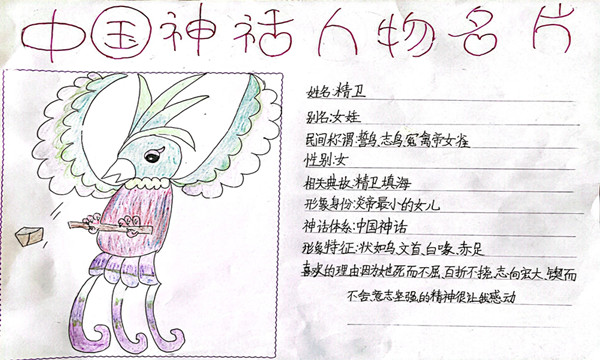 中国神话人物名片
姓名:精卫
别名:女娃
民间称谓:誓鸟、志鸟、冤禽、帝女雀
性别:女
相关典故:精卫填海
形象身份:炎帝最小的女儿
神话体系:中国神话
形象特征:状如鸟、文首、白喙、赤足
喜欢的理由:因为她死而不屈,百折不挠,志向宏大,锲而
不舍,意志坚强的精神很让我感动